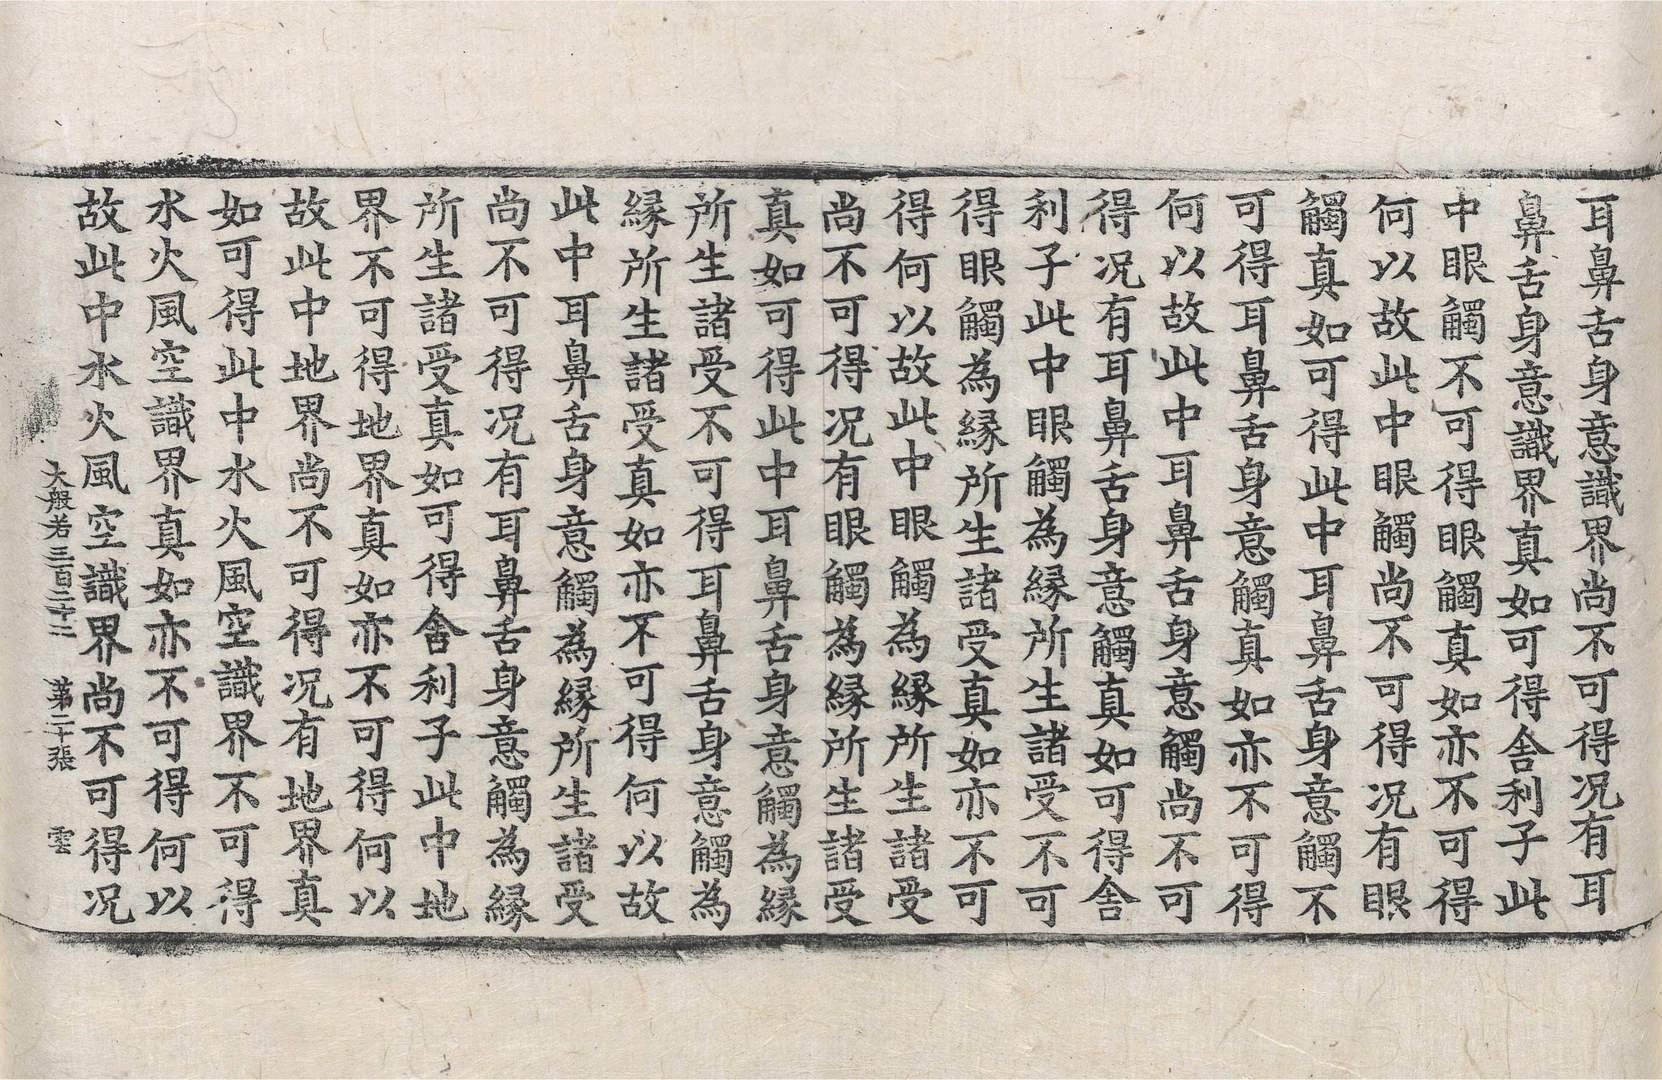 耳鼻舌身意識界尚不可得况有耳
鼻舌身意識界真如可得舍利子此
中眼觸不可得眼觸真如亦不可得
何以故此中眼觸尚不可得况有眼
觸真如可得此中耳鼻舌身意觸不
可得耳鼻舌身意觸真如亦不可得
何以故此中耳鼻舌身意觸尚不可
得况有耳鼻舌身意觸真如可得舍
利子此中眼觸為縁所生諸受不可
得眼觸為縁所生諸受真如亦不可
得何以故此中眼觸為縁所生諸受
尚不可得况有眼觸為縁所生諸受
真如可得此中耳鼻舌身意觸為縁
所生諸受不可得耳鼻舌身意觸為
縁所生諸受真如亦不可得何以故
此中耳鼻舌身意觸為縁所生諸受
尚不可得况有耳鼻舌身意觸為縁
所生諸受真如可得舍利子此中地
界不可得地界真如亦不可得何以
故此中地界尚不可得况有地界真
如可得此中水火風空識界不可得
水火風空識界真如亦不可得何以
故此中水火風空識界尚不可得况
大般若三百二十二 第二十張 雲